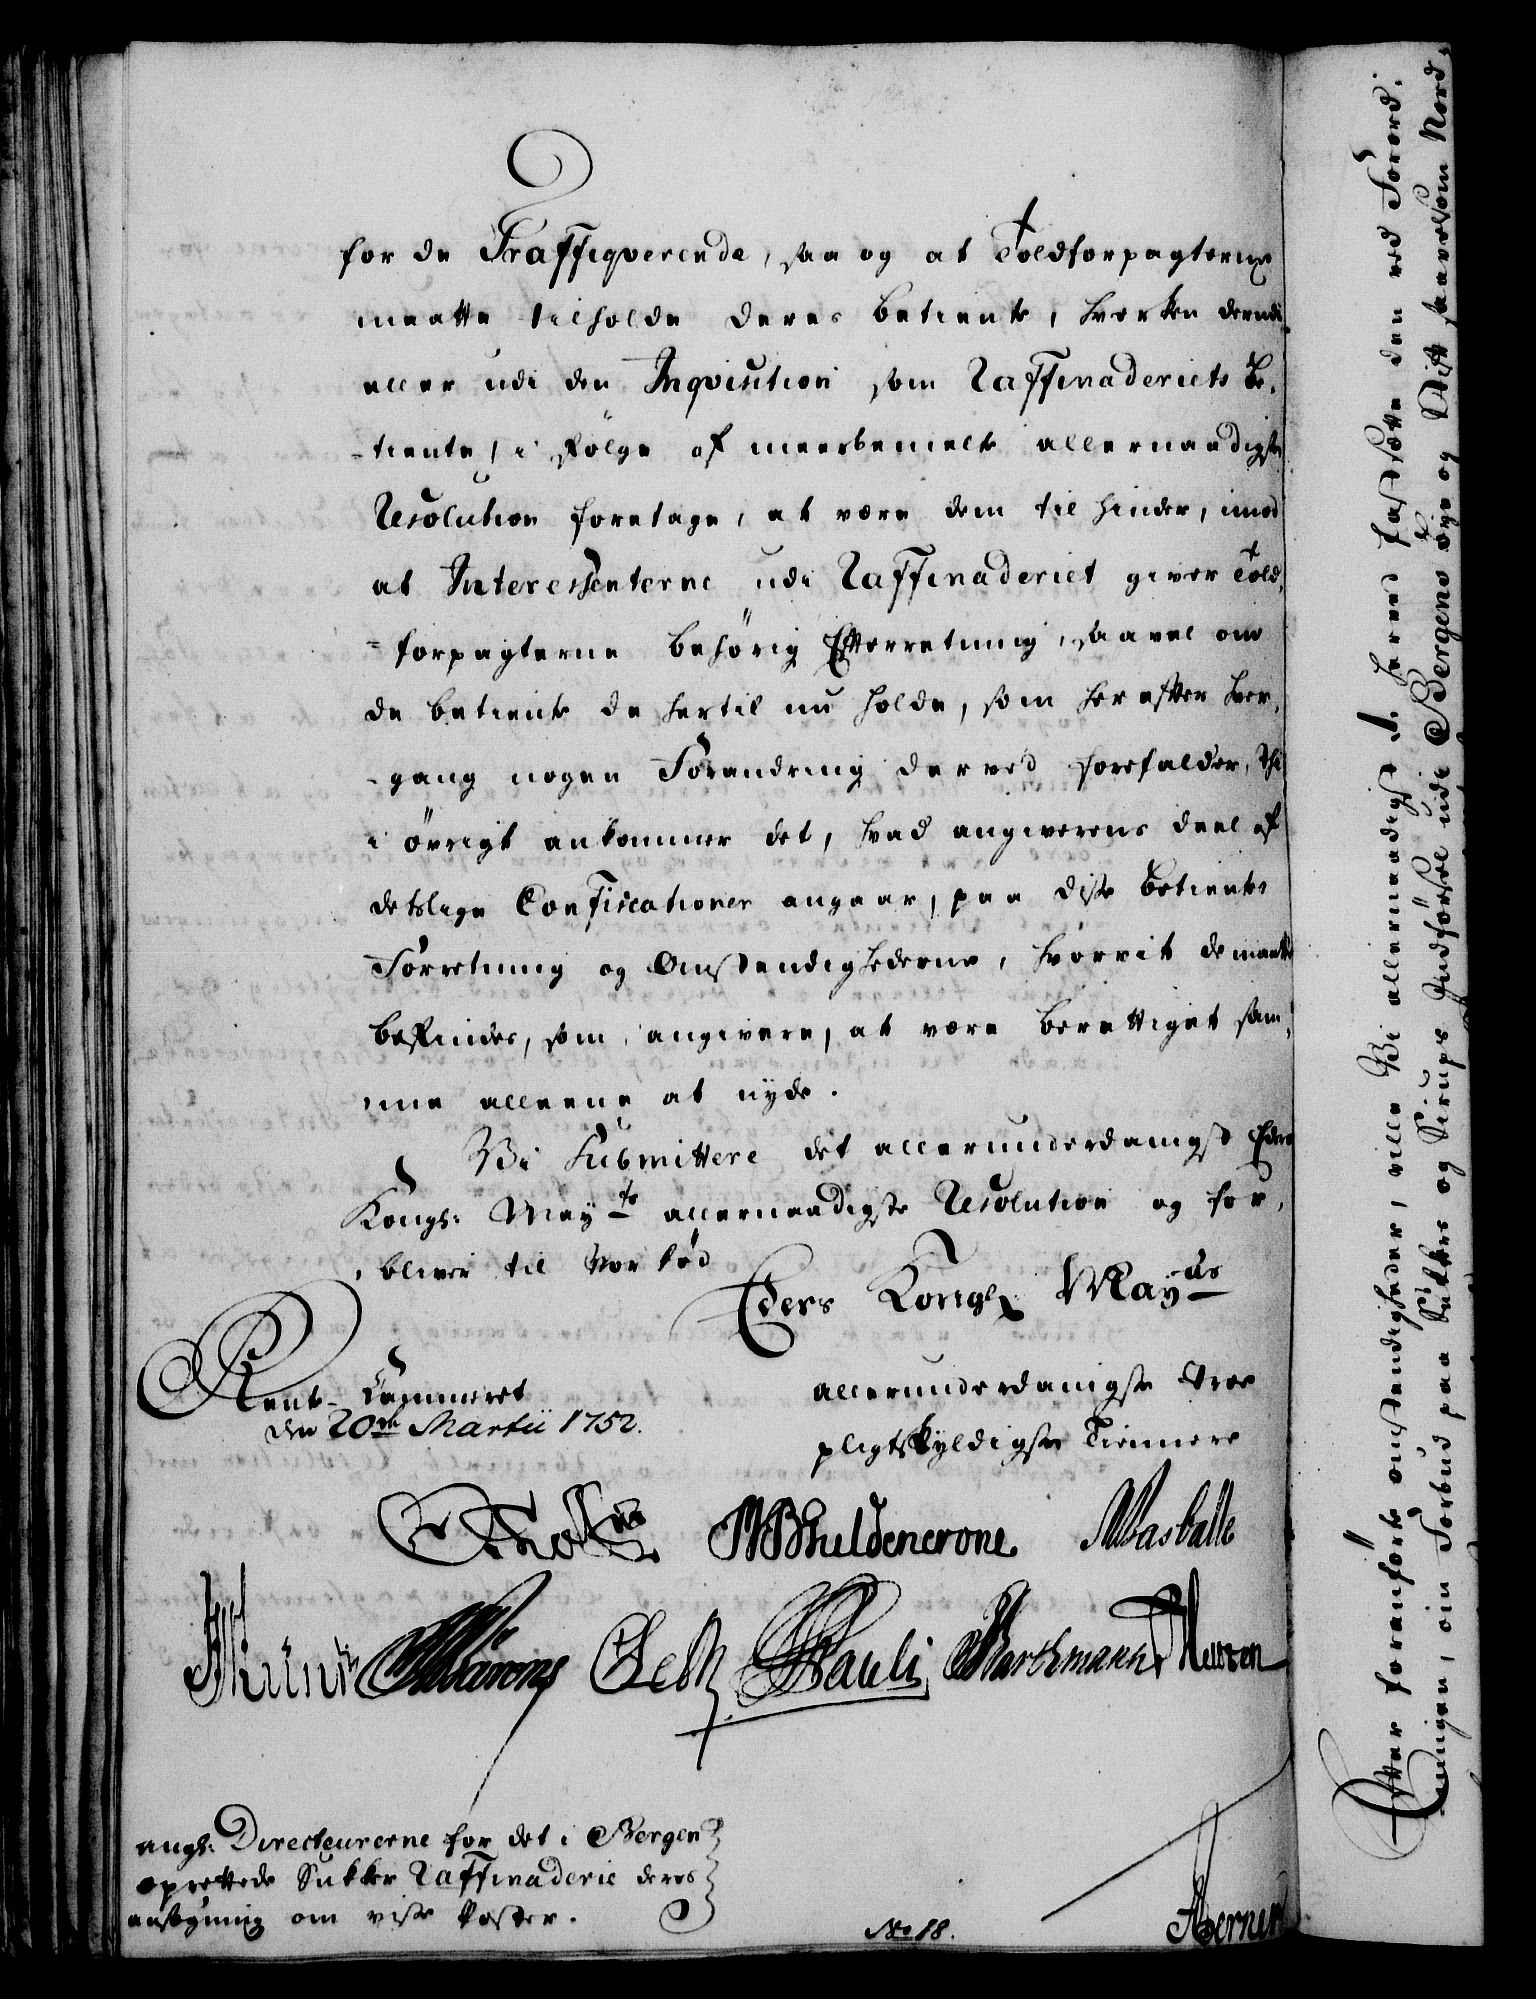 for de Traffiqverende, saa og at Toldforpagterne
maatte tilholde deres betiente, hverken derudi
eller udi den Inqvisition som Raffinaderiets be-
-tiente, i følge af meerbemelte allernaadigste
Resolution foretage, at være dem til hinder, imod
at Interessenterne udi Raffinaderiet giver Told-
=forpagterne behörig Efterretning, saavel om
de betiente de hertil nu holde, som herefter hver-
-gang nogen Forandring derved forefalder, Thi
i öfrigt ankommer det, hvad angiverens deel af
detslige Confiscationer angaar, paa disse betientes
Forretning og Omstændighederne, hvorvit de maatte
befindes, som angivere, at være berettiget sam-
-me alleene at nyde.
Vi Submittere det allerunderdanigst Eders
Kongl: May.ts allernaadigste Resolution og for-
-bliver til vor død
Eders Kongl. May.ts
Rente-Cammeret
den 20de Martii 1752.
allerunderdanigste troe
pligtskyldigste Tiennere
Guldencrone
Pauli
angl: Directeurerne for det i Bergen
oprettede Sukker Raffinaderie deres
ansøgning om visse Poster.
No 18.
Efter foranførte omstændigheder, ville Vi allernaadigst herved fastsætte den ved Forord-
-ningen, om Forbud paa Sukker og Sirups Indførsel udi Bergens bye og Stift saavelsom Nord-